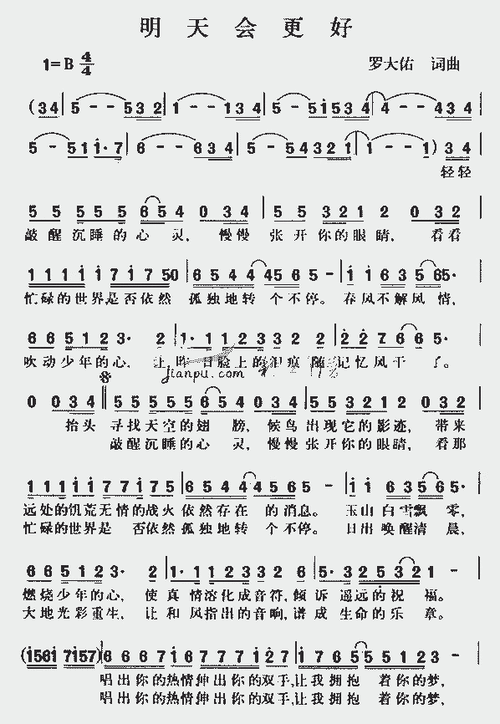 明天会更好
1=B 4/4
罗大佑 词曲
(34 | 5 - - 532 | 1 - - 134 | 5 - 51534 | 4 - - 434 |
5 - 511·7 | 6 - - 634 | 5 - 54321 | 1 - - 1 - ) 34 |
轻轻
55 555 654 034 | 55 321 2 032 |
敲醒沉睡的心灵, 慢慢 张开你的眼睛, 看看
1111171750 | 6 5 4 4 4565 · | 11 635 65· |
忙碌的世界是否依然 孤独地转 个不停。 春风不解风情,
吹动少年的心, 让昨日脸上的泪痕 随记忆风干了。
jianpu.com
0 034 ‖ 55 555 5654 034 | 55 321 2 032 |
抬头 寻找天空的翅膀, 候鸟出现它的影迹, 带来
敲醒沉睡的心灵, 慢慢张开你的眼睛, 看那
1111177175 | 6544 4565· | 11 635 65· |
远处的饥荒无情的战火依然存在的消息。 玉山白雪飘零,
忙碌的世界是否依然孤独地转个不停。 日出唤醒清晨,
燃烧少年的心, 使真情溶化成音符, 倾诉遥远的祝福。
大地光彩重生, 让和风指出的音响, 谱成生命的乐章。
唱出你的热情伸出你的双手,让我拥抱着你的梦,
唱出你的热情伸出你的双手,让我拥抱着你的梦,